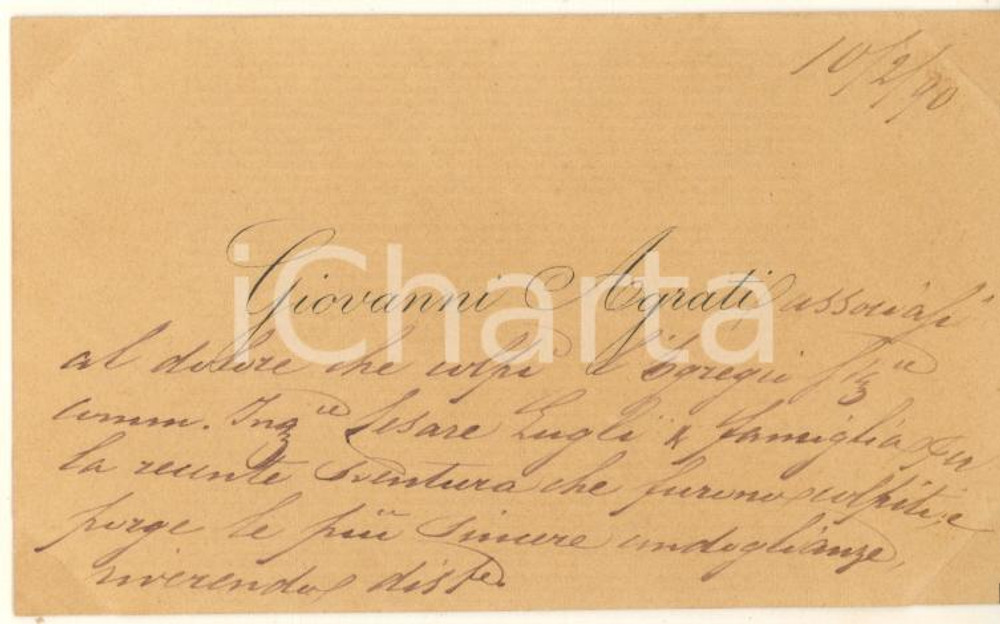 10/2/90
Giovanni Agrati associasi
al dolore che colpì l'Egregio Sig.re
comm. Ing.re Cesare Lugli & famiglia per
la recente sventura che furono colpiti, e
porge le più sincere condoglianze,
riverendo dist.te
iCharta